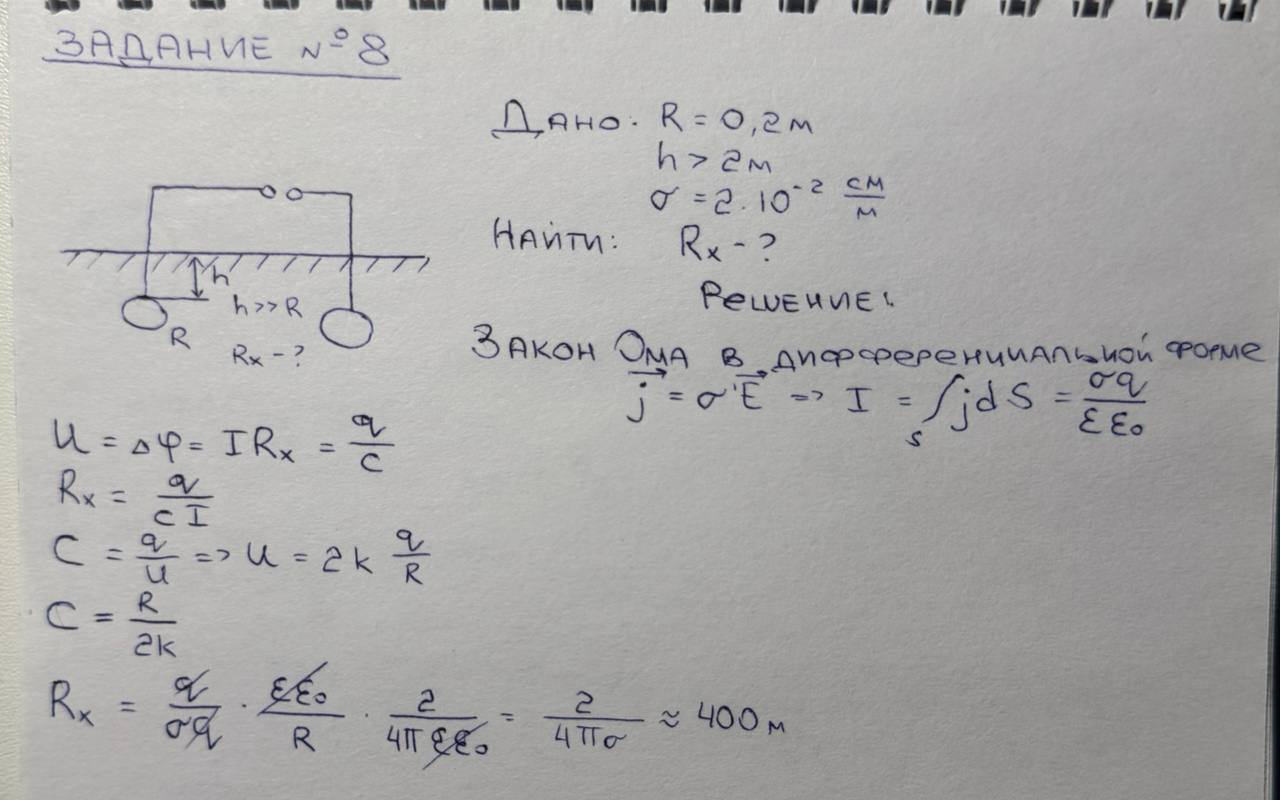 ЗАДАНИЕ №8
Дано: R = 0,2 м
h > 2 м
σ = 2·10⁻² См/м
Найти: Rₓ - ?
Решение:
h
h >> R
R
Rₓ - ?
Закон Ома в дифференциальной форме
j⃗ = σE⃗ => I = ∫ₛ jdS = σq/εε₀
U = Δφ = IRₓ = q/C
Rₓ = q/CI
C = q/U => U = 2k q/R
C = R/2k
Rₓ = q/σq · εε₀/R · 2/4πεε₀ = 2/4πσ ≈ 400 м